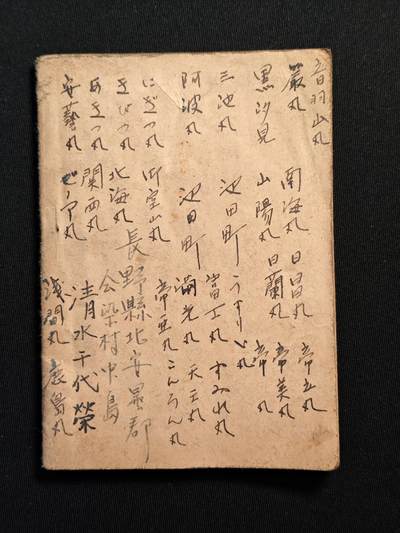 音羽山丸
巌丸 南海丸 日昌丸 帝立丸
黒沙見 山陽丸 日蘭丸 帝美丸
帝 丸
三池丸 池田町 うすりい丸
富士丸 すみれ丸
阿波丸 池田町 満光丸 天王丸
にぎつ丸 御室山丸 帝亜丸 こんろん丸
きびつ丸 北海丸 長野縣北安曇郡
あきつ丸 関西丸 会染村中島
安藝丸 ぜノア丸 清水千代榮
浅間丸 鹿島丸